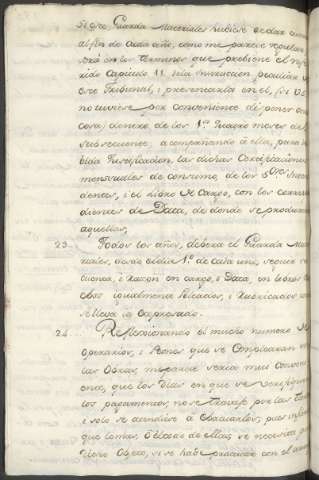 Si este Guarda Materiales hubiese de dar cuenta
al fin de cada año, como me parece regular
será en los terminos que prebiene el refe
rido Capitulo 11. de la instruccion peculiar de
este Tribunal, i presentarla en el, si V.E.
no tuviere por conveniente disponer otra
cosa, dentro de los 1.os quatro meses del
subsecuente, acompañando á ella, para la de
bida Justificacion, las dichas Certificaciones
mensuales de consumo, de los S.res
dentes, i el Libro de Cargo, con los correspon
dientes de Data, de donde se produzcan
aquellas,
23. Todos los años, deberá el Guarda Mate
riales, desde el dia 1.º de cada uno, seguir su
cuenta, i razon en cargo, i Data, en libros nu
ebos igualmente foliados, i rubricados como
se lleva ia expresado.
24. Reflexionando el mucho numero de
Operarios, i Peones que se emplearan en
las Obras, me parece seria mui conveni
ente, que los Dias en que se verifiquen
los pagamentos, no se trabaje por las tardes
i solo se atendiese á efectuarlos; pues
que lo mas, ó las de ellas, se necesita para
dicho Objeto, si se ha de practicar con el